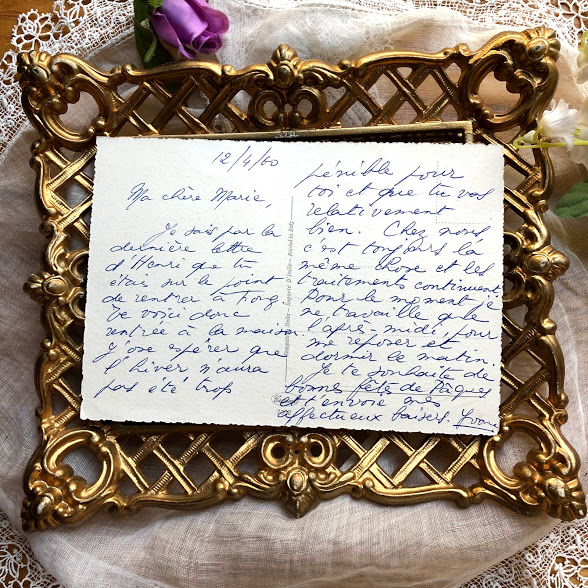 12/4/60
Ma chère Marie,
Je sais par la
dernière lettre
d'Henri que tu
étais sur le point
de rentrer à
Te voici donc
rentrée à la maison
J'ose espérer que
l'hiver n'aura
pas été trop
pénible pour
toi et que tu vas
relativement
bien. Chez nous
c'est toujours la
même chose et les
traitements continuent
Pour le moment je
ne travaille que
l'après-midi, pour
me reposer et
dormir le matin.
Je te souhaite de
bonnes fêtes de Pâques
et t'envoie mes
affectueux baisers. Yvonne